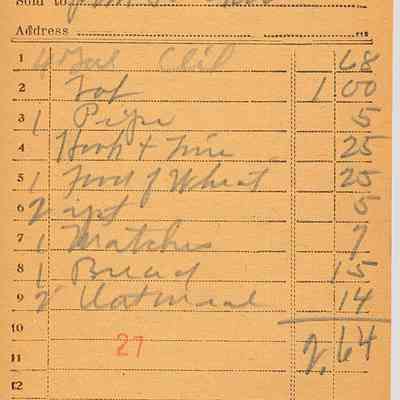 Sold to
Address
1 4 Gal Oil 68
2 1 00
3 1 Pipe 5
4 Hook + Line 25
5 1 Food of Wheat 25
6 2 yst 5
7 1 Matches 7
8 1 Bread 15
9 2 Oatmeal 14
10
27 2,64
11
12